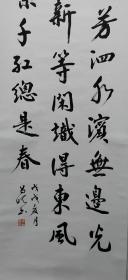 芳泗水濱無邊光
新等閑識得東風
千紅總是春
戊戌夏月